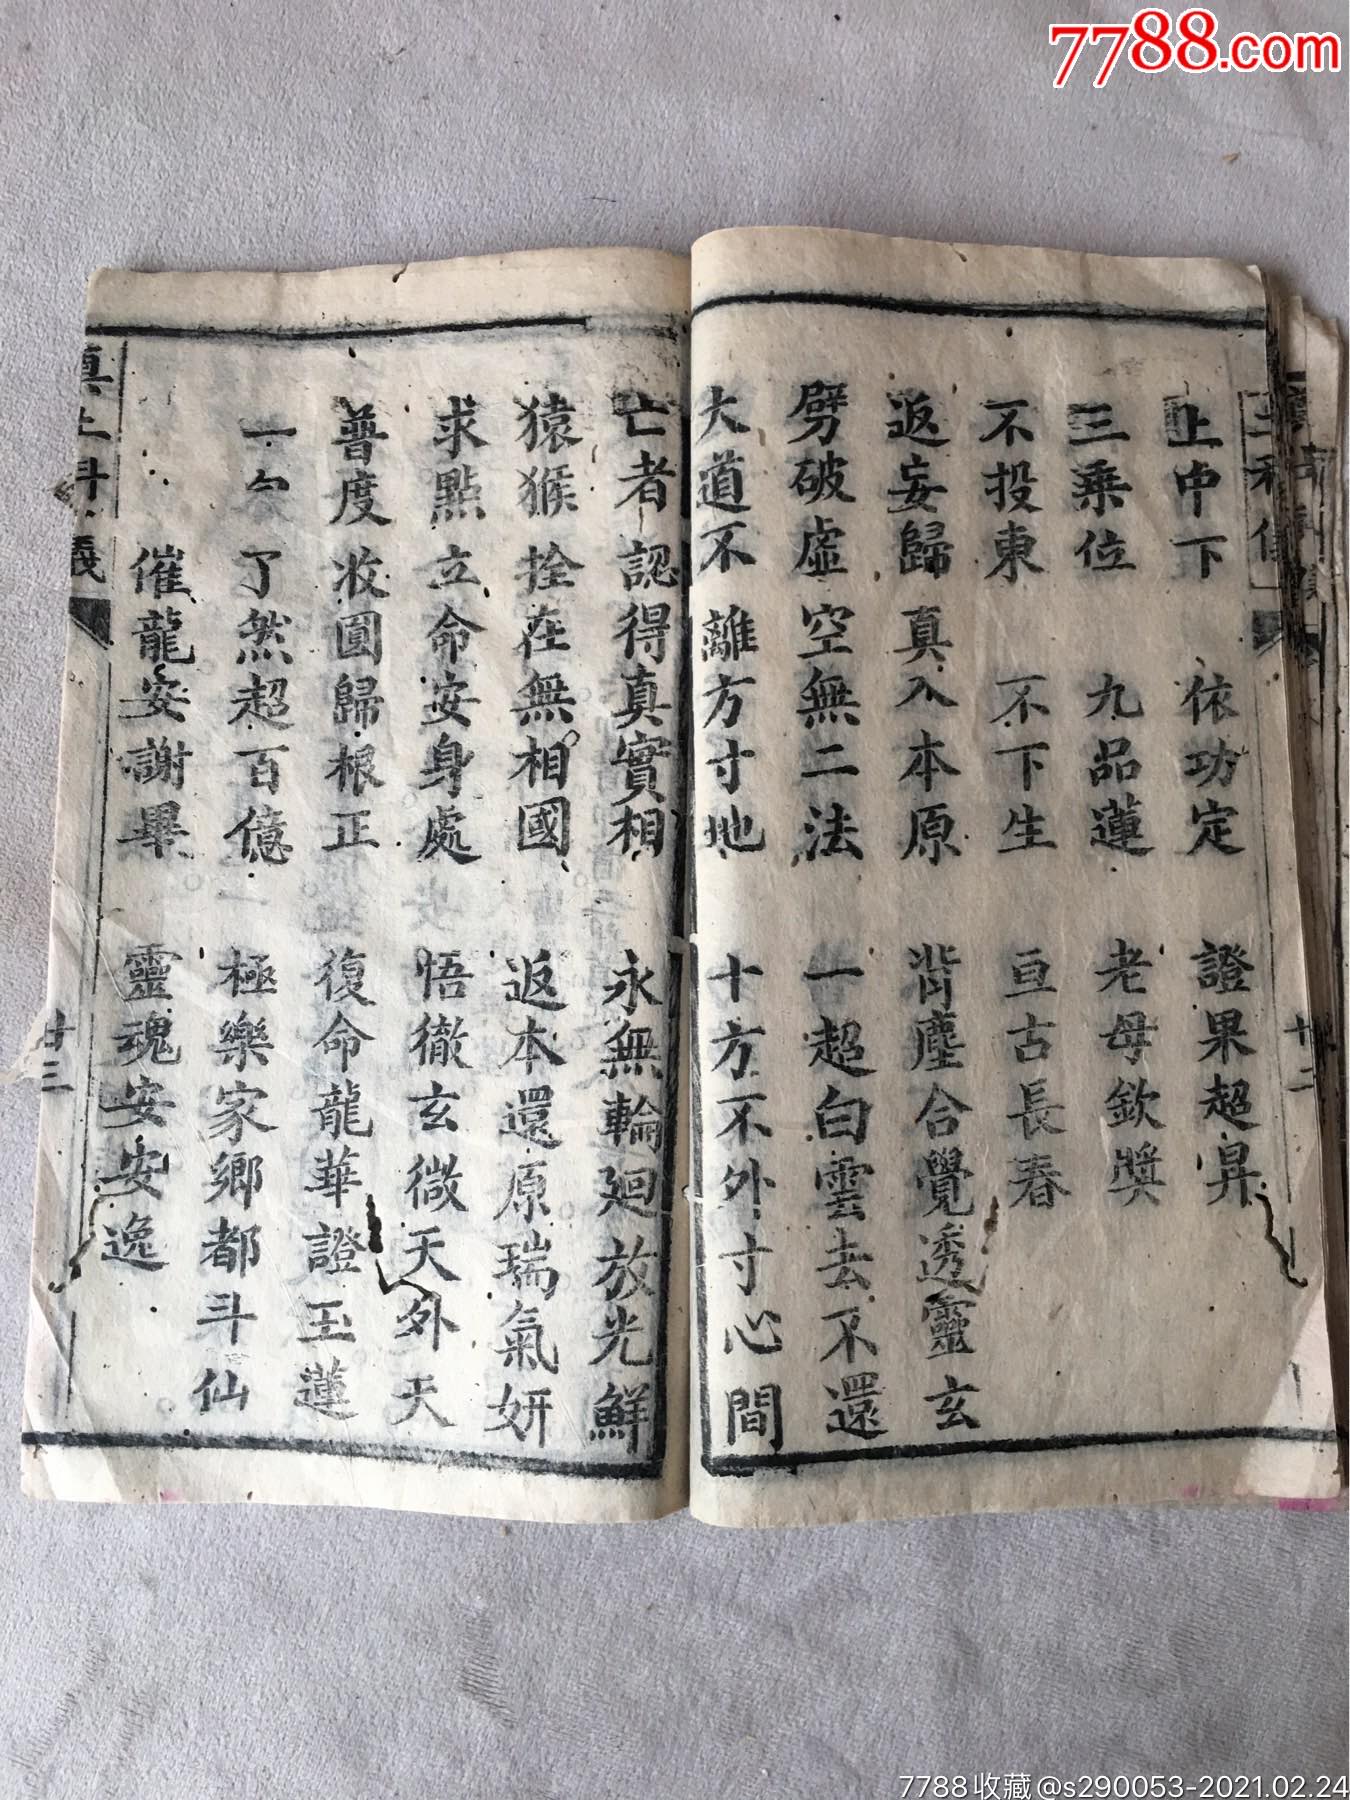 7788.com
上中下 依功定 證果超昇
三乘位 九品蓮 老母欽獎
不投東 不下生 亘古長春
返妄歸真入本原 背塵合覺透靈玄
劈破虛空無二法 一超白雲去不還
大道不離方寸地 十方不外寸心間
亡者認得真實相 永無輪廻放光鮮
猿猴拴在無相國 返本還原瑞氣妍
求點立命安身處 悟徹玄微天外天
普度收圓歸根正 復命龍華證玉蓮
一句了然超百億 極樂家鄉都斗仙
催龍安謝畢 靈魂安安逸
廿三
廿二
7788收藏@s290053-2021.02.24